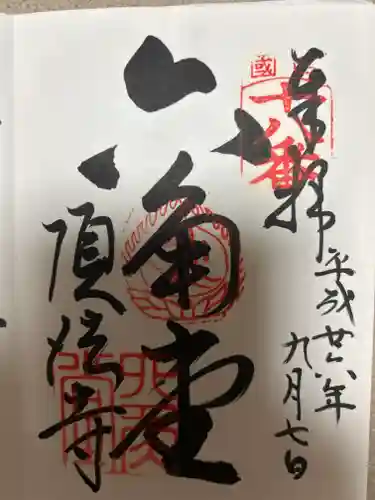 奉拝
平成廿六年
九月七日
西國
十八番
六角堂
頂法寺